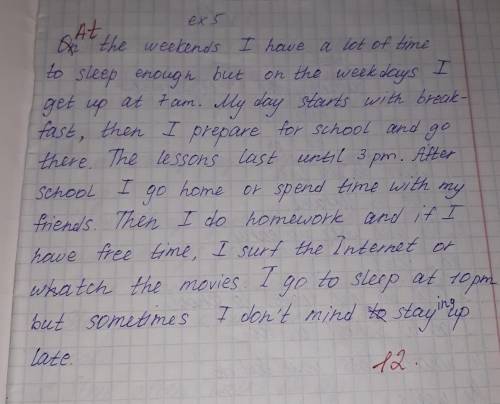 ex 5
At
On the weekends I have a lot of time
to sleep enough but on the weekdays I
get up at 7 am. My day starts with break-
fast, then I prepare for school and go
there. The lessons last until 3 pm. After
school I go home or spend time with my
friends. Then I do homework and if I
have free time, I surf the Internet or
whatch the movies. I go to sleep at 10 pm
but sometimes I don't mind to staying up
late.
12.